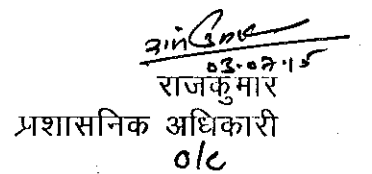 03.07.15
राजकुमार
प्रशासनिक अधिकारी
o/c